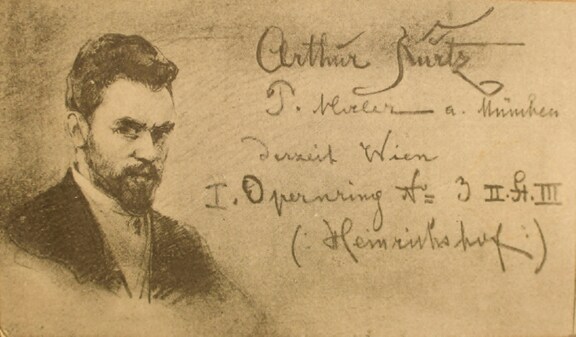 Arthur Kurtz
P. Maler a. München
derzeit Wien
I. Opernring No 3 II. St. III
(: Heinrichshof :)